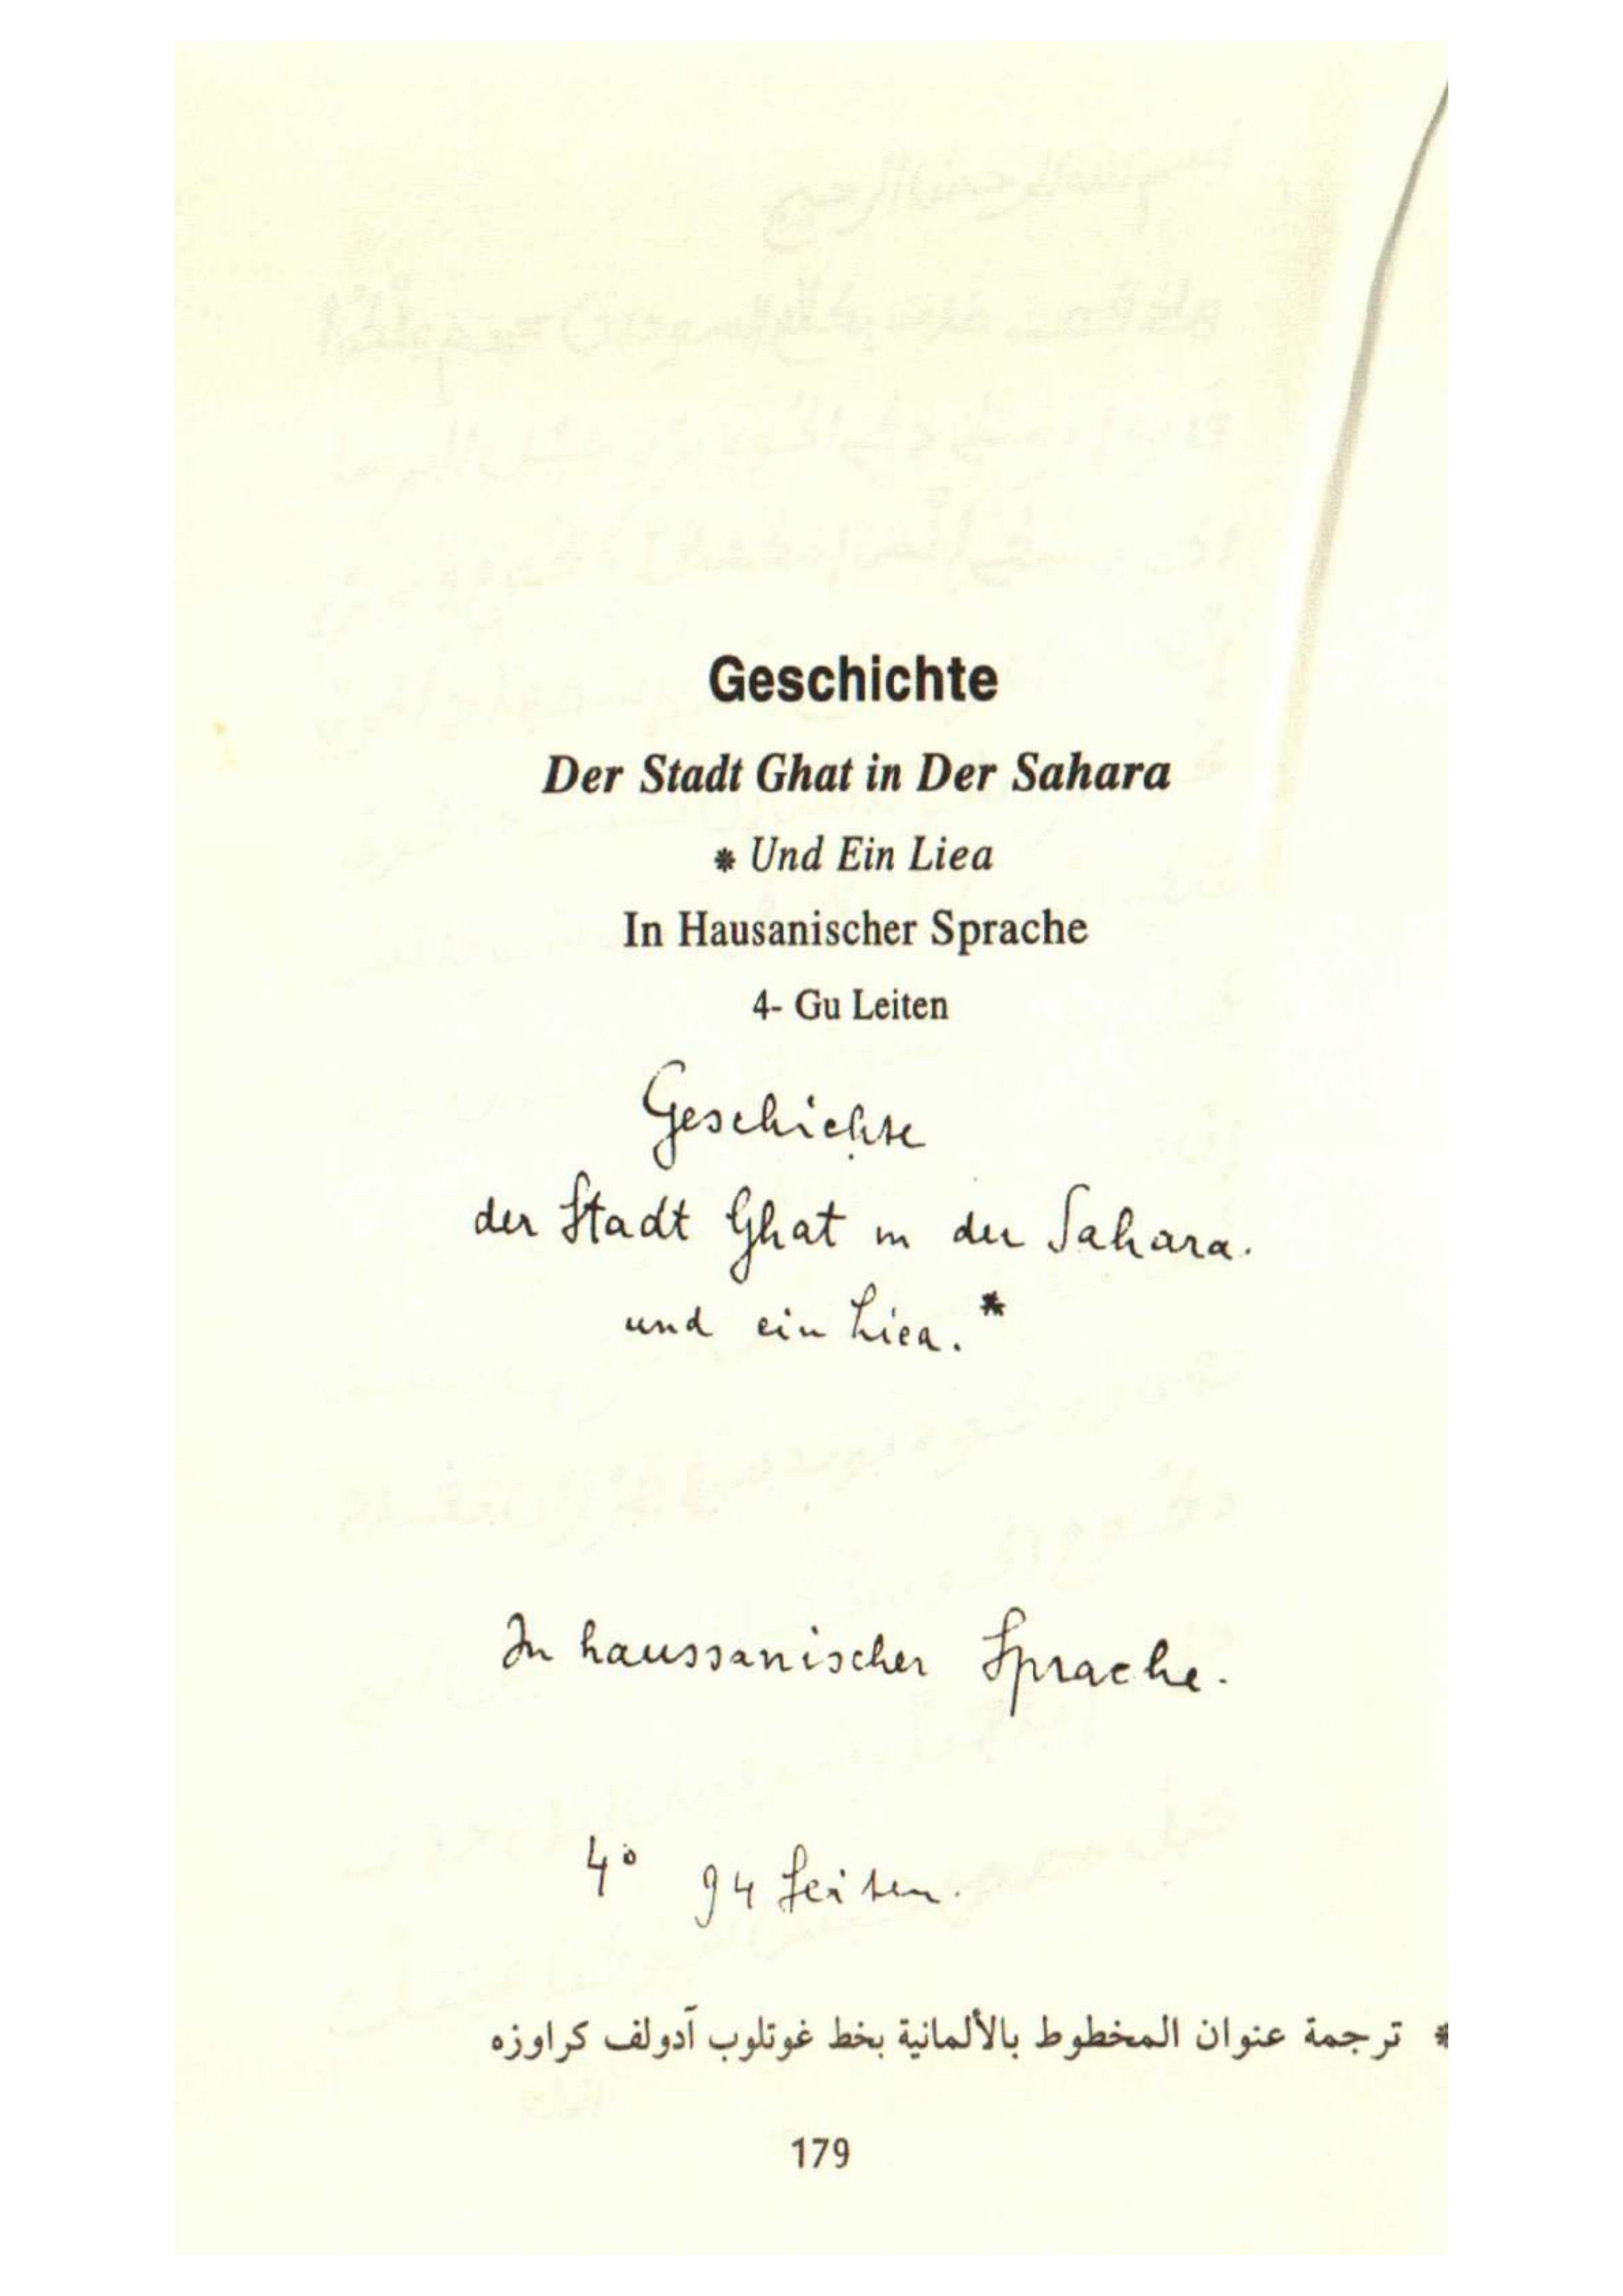 Geschichte
Der Stadt Ghat in Der Sahara
* Und Ein Liea
In Hausanischer Sprache
4- Gu Leiten
Geschichte
der Stadt Ghat in der Sahara.
und ein Liea.*
In haussanischer Sprache.
4° 94 Seiten.
* ترجمة عنوان المخطوط بالألمانية بخط غوتلوب آدولف كراوزه
179